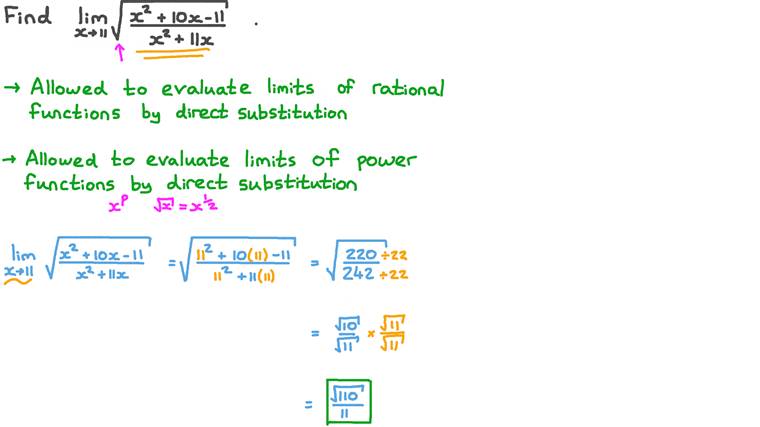 Find lim x→11 √((x² + 10x - 11)/(x² + 11x)) .
→ Allowed to evaluate limits of rational
functions by direct substitution
→ Allowed to evaluate limits of power
functions by direct substitution
xᵖ √x = x^½
lim x→11 √((x² + 10x - 11)/(x² + 11x)) = √((11² + 10(11) - 11)/(11² + 11(11))) = √((220 ÷22)/(242 ÷22))
= √10/√11 × √11/√11
= √110/11